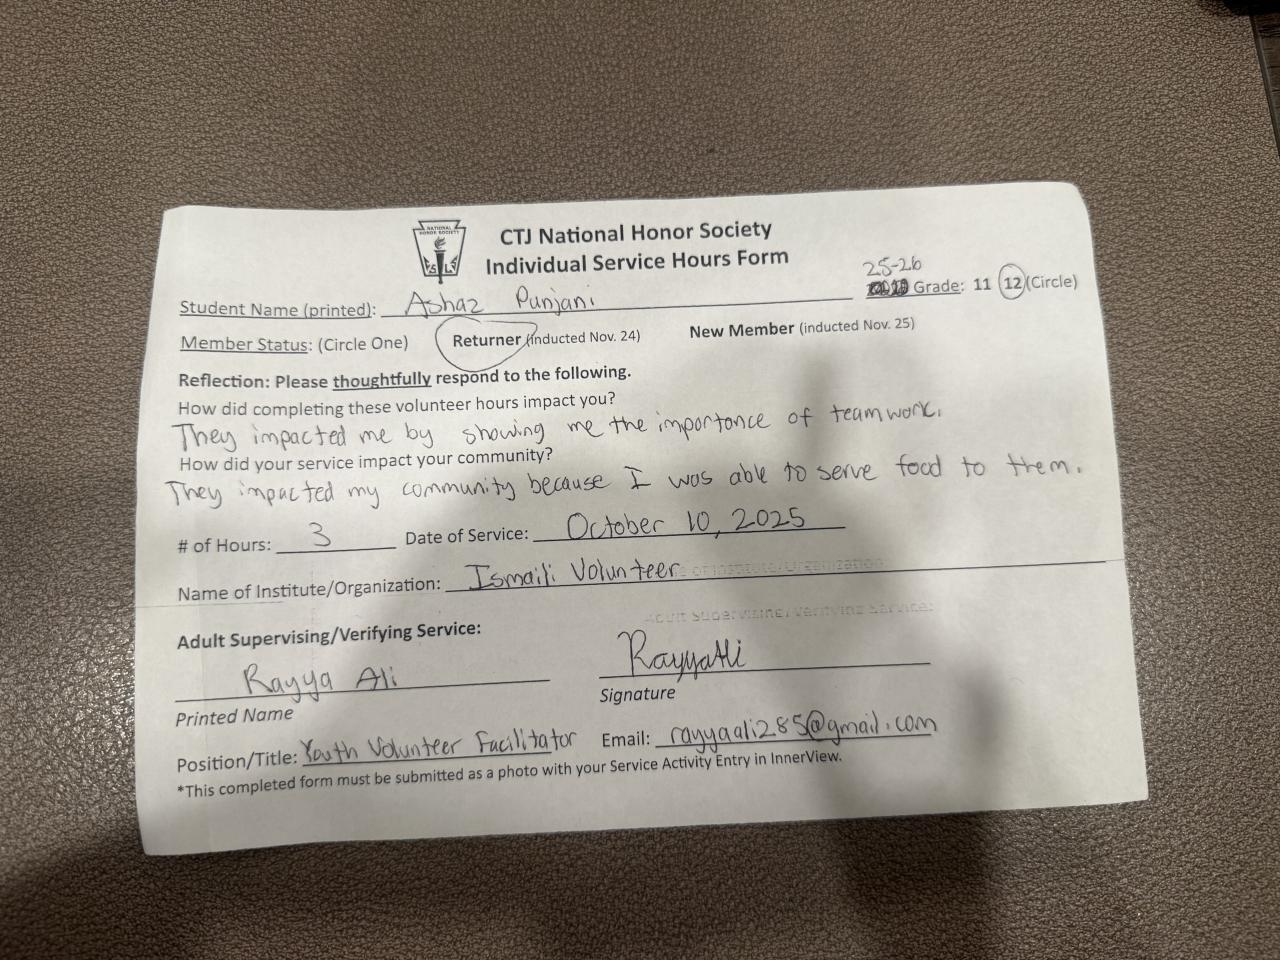 NATIONAL
HONOR SOCIETY
CTJ National Honor Society
Individual Service Hours Form
25-26
Student Name (printed): Ashaz Punjani Grade: 11 12 (Circle)
Member Status: (Circle One) Returner (inducted Nov. 24) New Member (inducted Nov. 25)
Reflection: Please thoughtfully respond to the following.
How did completing these volunteer hours impact you?
They impacted me by showing me the importance of teamwork.
How did your service impact your community?
They impacted my community because I was able to serve food to them.
# of Hours: 3 Date of Service: October 10, 2025
Name of Institute/Organization: Ismaili Volunteer
Adult Supervising/Verifying Service:
Rayya Ali RayyaAli
Printed Name Signature
Position/Title: Youth Volunteer Facilitator Email: rayyaali285@gmail.com
*This completed form must be submitted as a photo with your Service Activity Entry in InnerView.